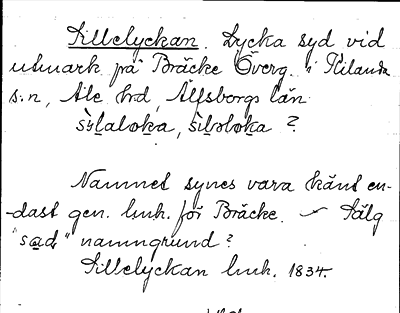 Sillelyckan. Lycka syd vid
utmark på Bräcke Överg. i Kilanda
s:n, Ale hrd, Älfsborgs län
Namnet synes vara känt en-
-dast gen. lmh. för Bräcke. - Sälg
"sad" namngrund?
Sillelyckan lmh. 1834.